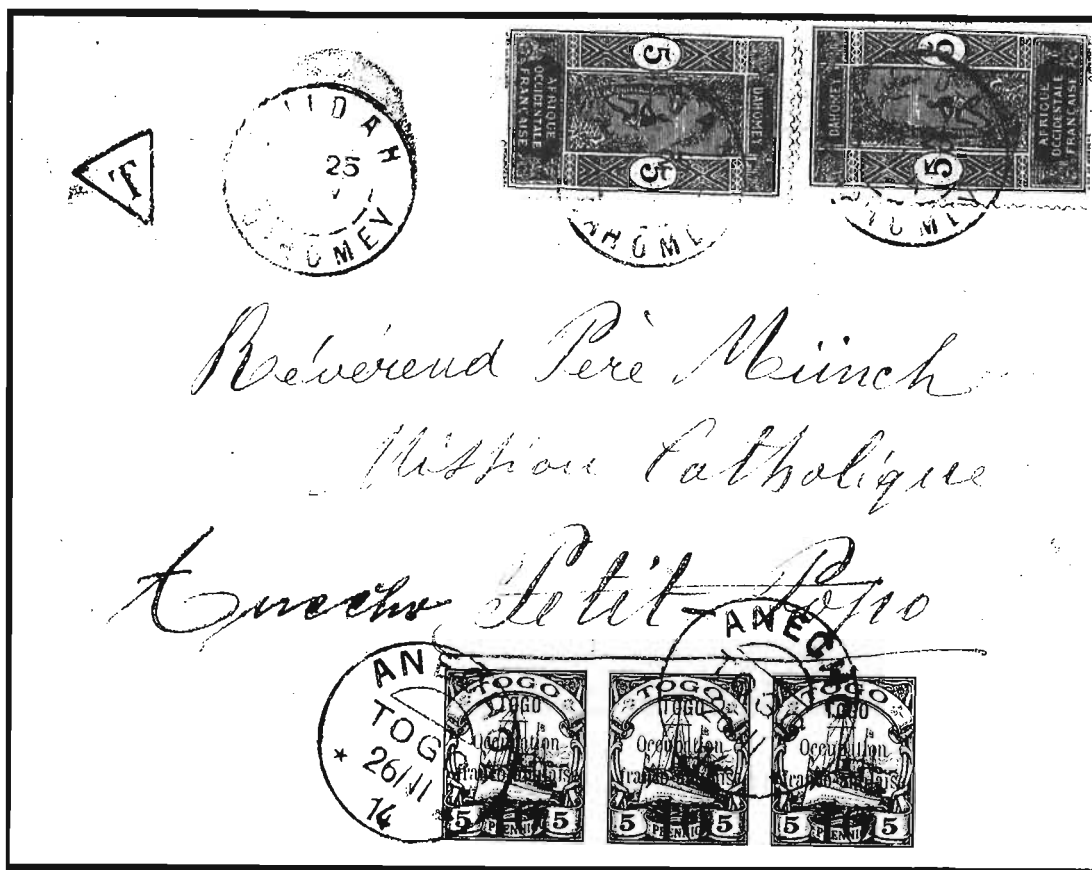 T
UIDAH
25
DAHOMEY
5
5
AFRIQUE
OCCIDENTALE
FRANÇAISE
DAHOMEY
5
5
DAHOMEY
AFRIQUE
OCCIDENTALE
FRANÇAISE
Révérend Père Münch
Mission Catholique
Anecho Petit-Popo
ANECHO
TOGO
26/11
14
ANECHO
TOGO
TOGO
Occupation
franco-anglaise
5 PFENNIG 5
TOGO
TOGO
Occupation
franco-anglaise
5 PFENNIG 5
TOGO
TOGO
Occupation
franco-anglaise
5 PFENNIG 5